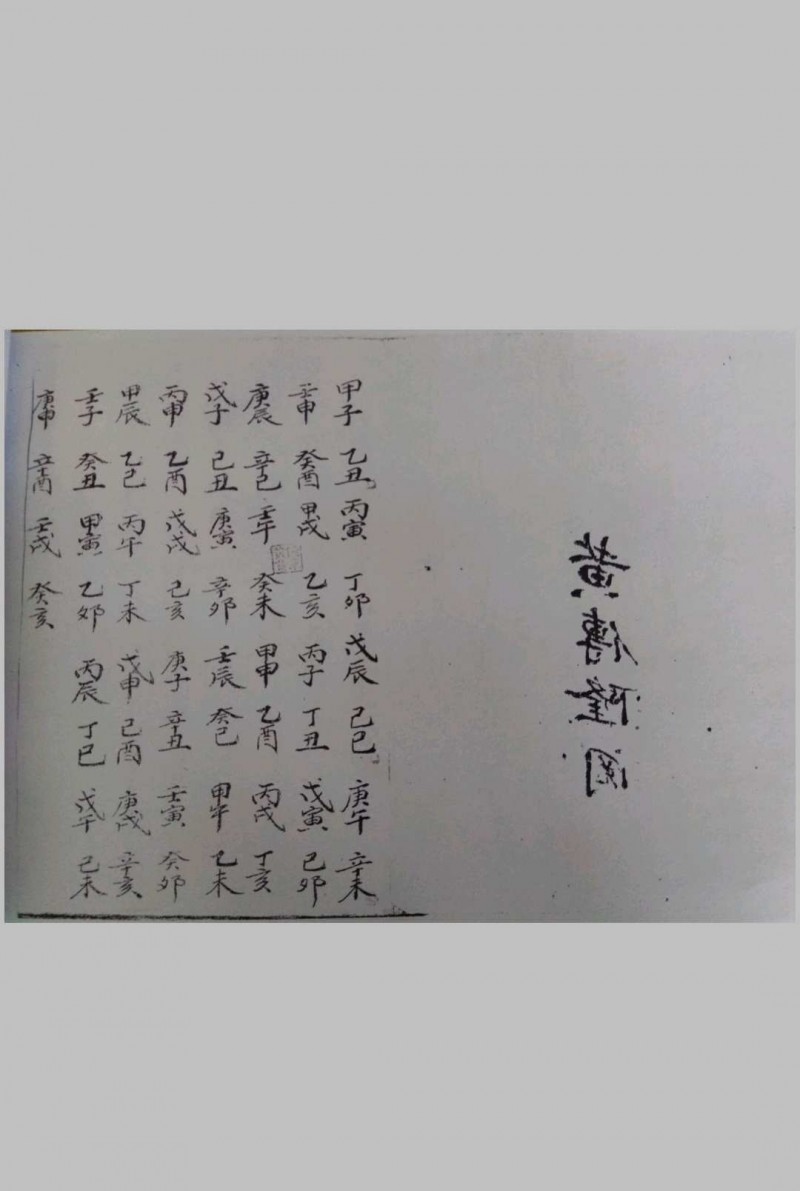 黄傳隆
甲子 乙丑 丙寅 丁卯 戊辰 己巳 庚午 辛未
壬申 癸酉 甲戌 乙亥 丙子 丁丑 戊寅 己卯
庚辰 辛巳 壬午 癸未 甲申 乙酉 丙戌 丁亥
戊子 己丑 庚寅 辛卯 壬辰 癸巳 甲午 乙未
丙申 乙酉 戊戌 己亥 庚子 辛丑 壬寅 癸卯
甲辰 乙巳 丙午 丁未 戊申 己酉 庚戌 辛亥
壬子 癸丑 甲寅 乙卯 丙辰 丁巳 戊午 己未
庚申 辛酉 壬戌 癸亥